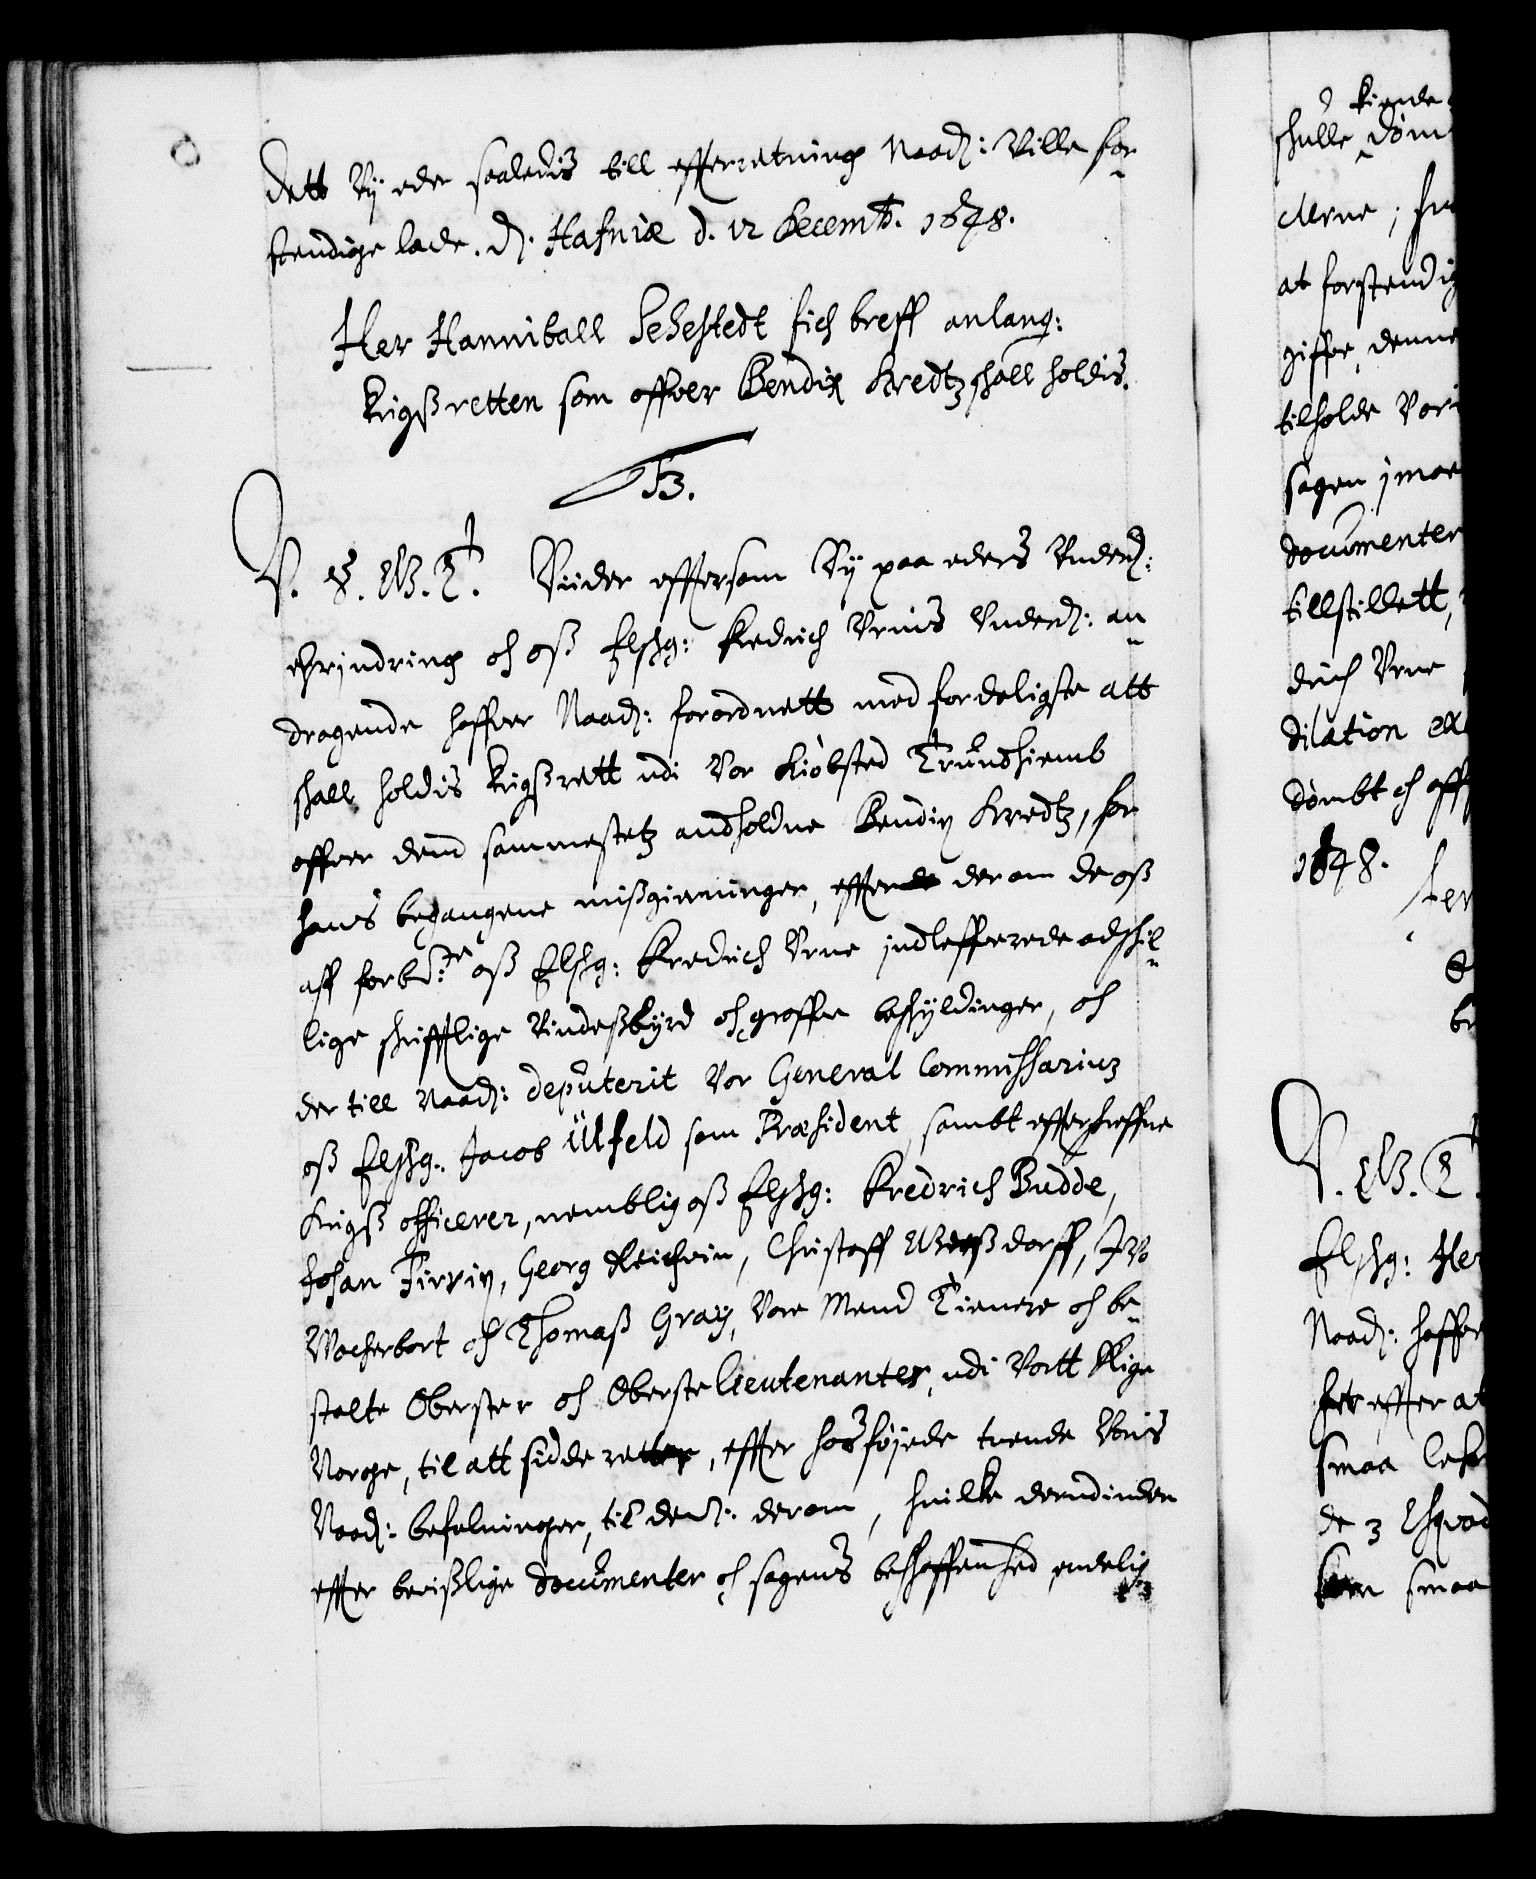 dett Vij eder saaledis till efferretning Naad: Ville for
stendige lade. D. Hafniæ d. 12 Decemb. 1648.
Her Hanniball Sehestedt fich breff anlang:
krigßretten som offver Bendix Kredtz shall holdis.
F 3.
V. G. W. T. Viider effersom Vij paa eders Underd:
erhjndring och oß Elshg: Fredrich Vrnis Underd: an
dragende haffver Naad: forordnett med forderligste att
shall holdis krigßrett udi Vor Kiöbsted Trundhiemb
offver dend sammestetz andholdne Bendix Kredtz, for
hans begangene mißgierninger, effter derom de oß
aff forbte: oß Elshg: Fredrich Vrne indleffverede adshil
lige shrifftlige Vindeßbyrd och groffve beshyldinger, och
der till Naad: deputerit Vor General Commissarius
oß Elshg: Jacob Ülfeld som Præsident, sambt effterschreffne
Krigß officerer, nemblig oß Elshg: Fredrich Budde,
Johan Georg Reichvin, Christoff Jvo
Wacherbort och Thomaß Gray, Vore Mend Tienere och be
stalte Oberster och Oberste lieutenanter, udi Vortt Rige
Norge, til att sidde retten, effter hosföjede tvende Voris
Naad: befalninger, til dend: derom, huilke derudinden
effter beuißlige documenter och sagens beshaffenhed endelig
kiende
shulle döm
clerne; hu
at forstendig
giffve, denne
tilholde Vori
sagen j maa
documenter
tillstillett,
drich Vrne
dilation ex
dömbt och aff
1648.
Her
be
V. W. T.
Elshg: Her
Naad: haffve
effter at
smaa
de 3 Esqvad
smaa